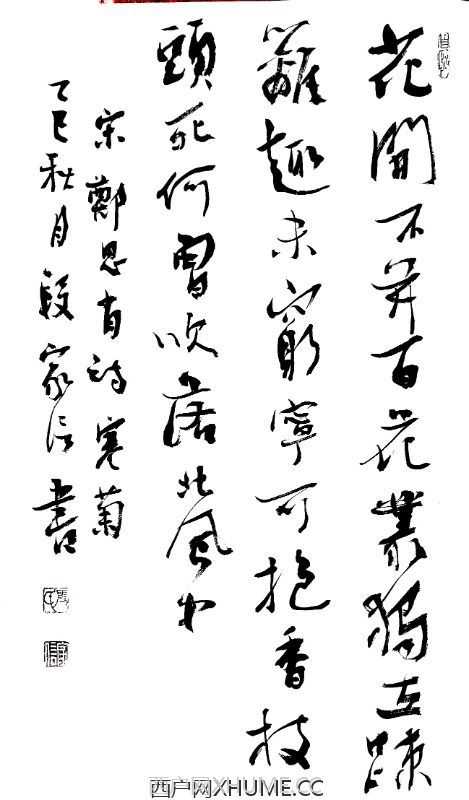 花開不并百花叢獨立疎
籬趣未窮寧可抱香枝
頭死何曾吹落北風中
宋鄭思肖詩寒菊
乙巳秋月段家書
西户网XHUME.CC